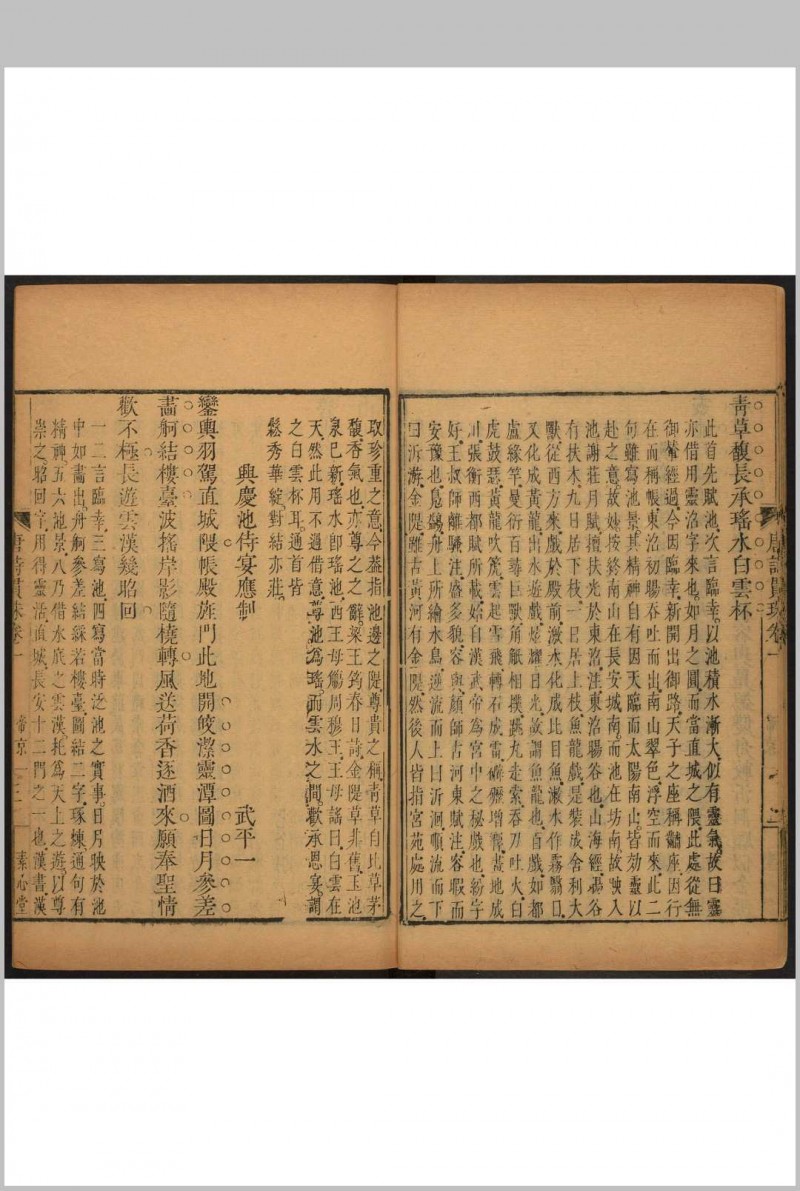 青草馥長承瑤水白雲杯
此首先賦池次言臨幸以池積水漸大似有靈氣故曰靈
亦借用靈沼字來也如月之圓而當直城之隈此處從無
御輦經過今因臨幸新開出御路天子之座稱黼座因行
在而稱帳東沼初暘吞吐而出南山翠色浮空而來此二
句雖寫池景其精神自有因天臨而太陽南山皆効靈以
赴之意故妙按終南山在長安城南而池在坊南故駛入
池謝莊月賦擅扶光於東沼注東沼暘谷也山海經暘谷
有扶木九日居下枝一日居上枝魚龍戲是裝成舍利大
獸從西方來戲於殿前激水化成比目魚漱水作霧翳日
又化成黃龍出水遊戲炫耀日光故謂魚龍也百戲如都
盧緣竿曼衍百尋巨獸角觝相撲跳丸走索吞刀吐火白
虎鼓瑟黃龍吹篪雲起雪飛轉石成雷礔礰增響畫地成
川張衡西都賦所載始自漢武帝爲宮中之秘戲也紛字
好王叔師離騷注盛多貌容與顏師古河東賦注容暇而
安豫也鳧鷁舟上所繪水鳥逆流而上曰沂洄順流而下
曰泝游金隄雖古黃河有金隄然後人皆指宮苑處用之
唐詩貫珠卷一
取珍重之意今葢指池邊之隄尊貴之稱青草自比草茅
馥香氣也亦尊之之辭梁王筠春日詩金隄草非舊玉池
泉已新瑤水卽瑤池西王母觴周穆王王母謠曰白雲在
天然此用不過借意尊池爲瑤而雲水之間歡承恩宴謂
之白雲杯耳通首皆
鬆秀華綻對結亦莊
興慶池侍宴應制
武平一
鑾輿羽駕直城隈帳殿旌門此地開皎潔靈潭圖日月參差
畫舸結樓臺波搖岸影隨橈轉風送荷香逐酒來願奉聖情
歡不極長遊雲漢幾昭回
一二言臨幸三寫池四寫當時泛池之實事日月映於池
中如畫出舟舸參差結綵若樓臺圖結二字琢煉通句有
精神五六池景八乃借水底之雲漢托爲天上之遊以尊
崇之昭回字用得靈活直城長安十二門之一也漢書漢
唐詩貫珠卷一
帝京一
三
素心堂